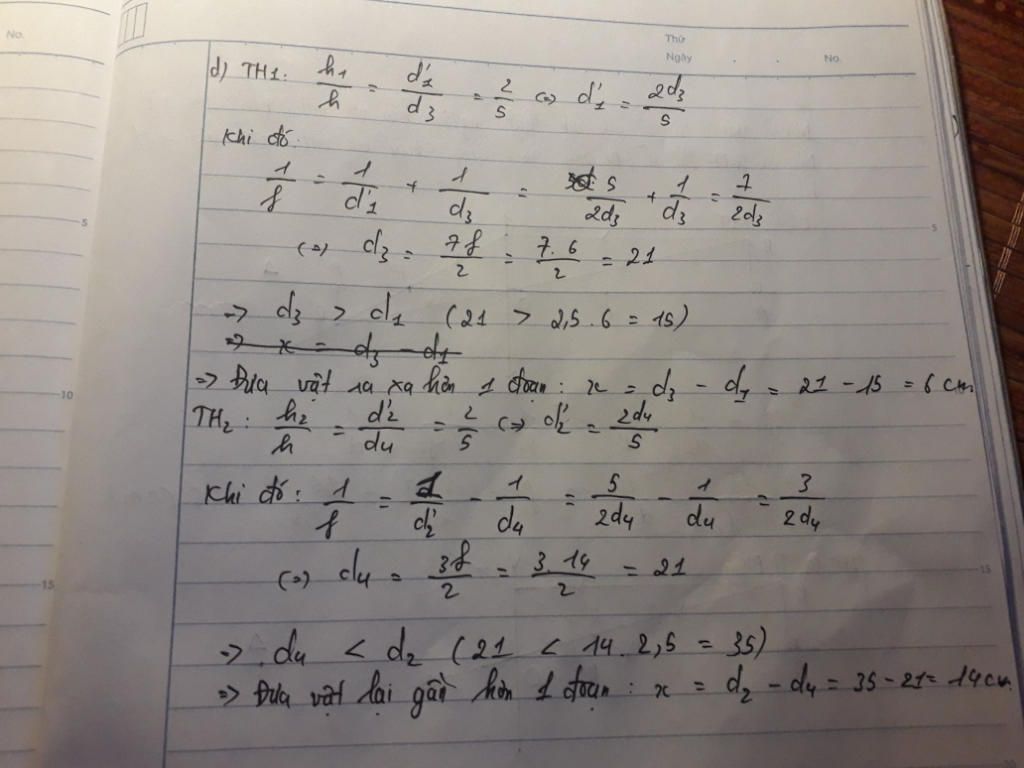 No.
Thứ
Ngày . . No.
d) TH1: h1/h = d'1/d3 = 2/5 (=> d'1 = 2d3/5
Khi đó:
1/f = 1/d'1 + 1/d3 = 5/2d3 + 1/d3 = 7/2d3
(=) d3 = 7f/2 = 7.6/2 = 21
=> d3 > d1 (21 > 2,5.6 = 15)
=> x = d3 - d1
=> Đưa vật ra xa hơn 1 đoạn: x = d3 - d1 = 21 - 15 = 6 cm
TH2: h2/h = d'2/d4 = 2/5 (=> d'2 = 2d4/5
Khi đó: 1/f = 1/d'2 - 1/d4 = 5/2d4 - 1/d4 = 3/2d4
(=>) d4 = 3f/2 = 3.14/2 = 21
=> d4 < d2 (21 < 14.2,5 = 35)
=> Đưa vật lại gần hơn 1 đoạn: x = d2 - d4 = 35 - 21 = 14 cm.
5
10
15
5
15